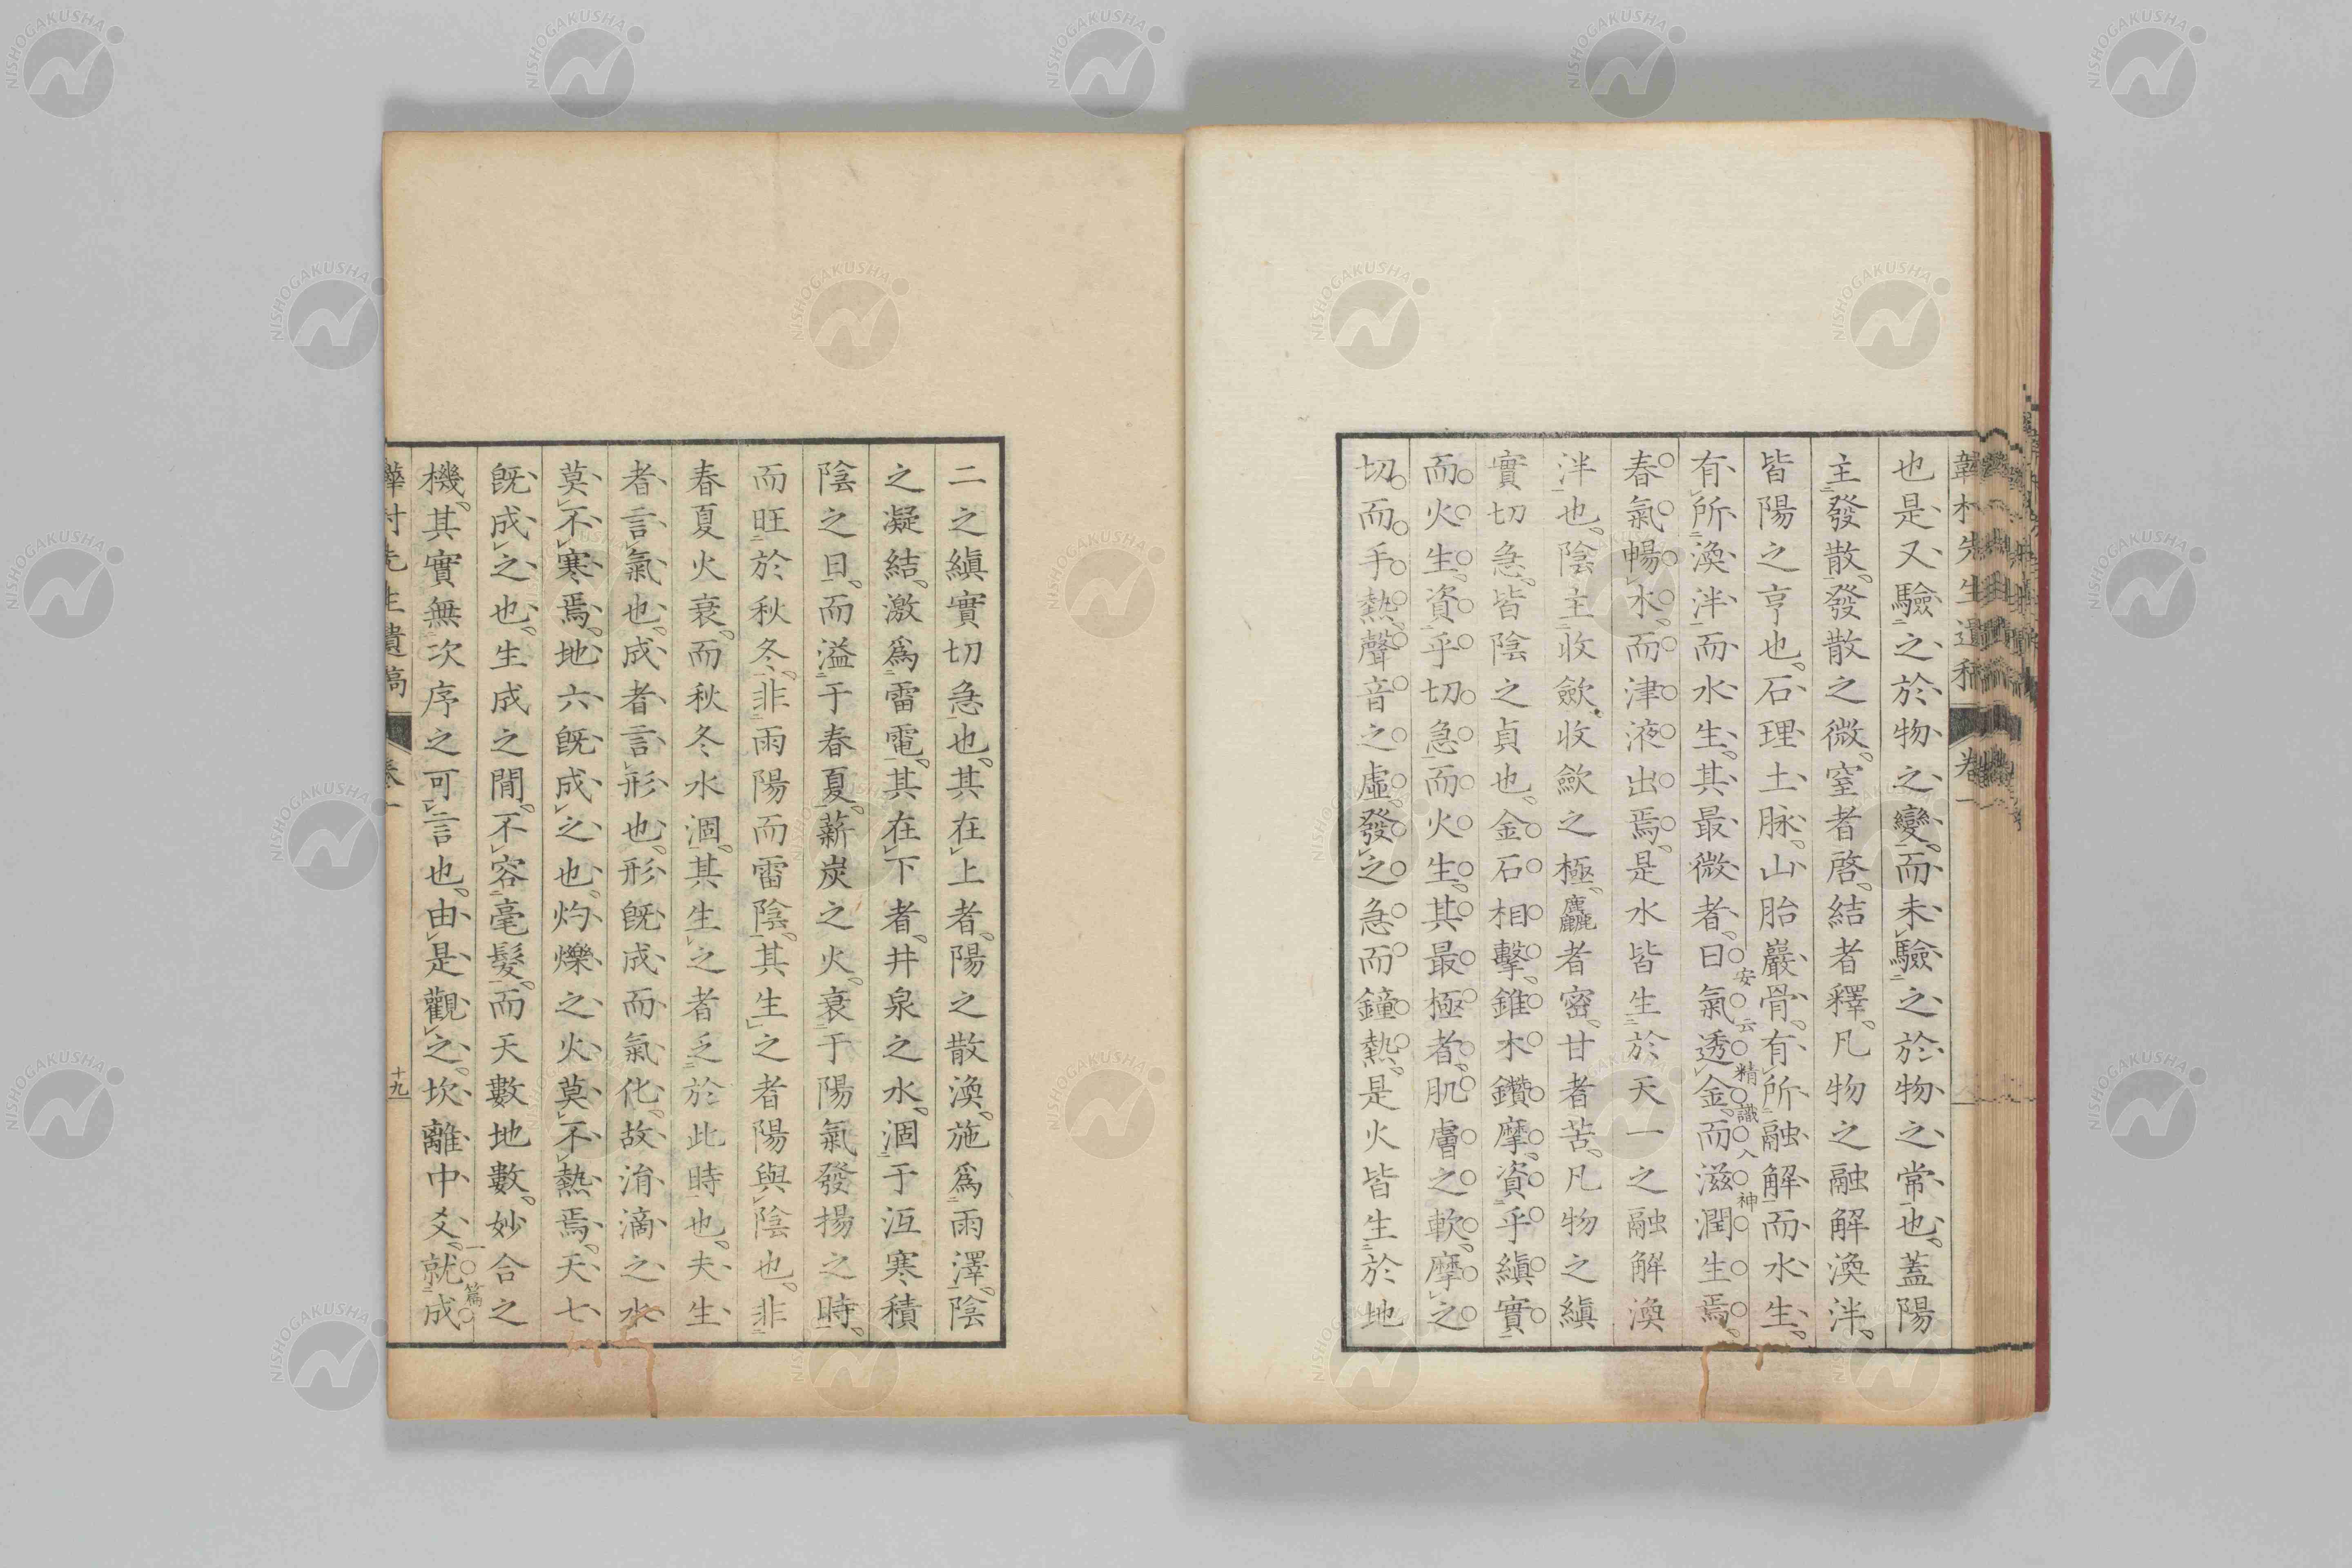 也是又驗之於物之變而未驗之於物之常也蓋陽
主發散發散之微窒者啓結者釋凡物之融解渙泮
皆陽之亨也石理土脉山胎巖骨有所融解而水生
有所渙泮而水生其最微者曰氣透金而滋潤生焉
安云精識入神
春氣暢水而津液出焉是水皆生於天一之融解渙
泮也陰主收歛收歛之極麤者密甘者苦凡物之縝
實切急皆陰之貞也金石相擊錐木鑽摩資乎縝實
而火生資乎切急而火生其最極者肌膚之軟摩之
切而手熱聲音之虛發之急而鐘熱是火皆生於地
二之縝實切急也其在上者陽之散渙施爲雨澤陰
之凝結激爲雷電其在下者井泉之水涸于沍寒積
陰之日而溢于春夏薪炭之火衰于陽氣發揚之時
而旺於秋冬非雨陽而雷陰其生之者陽與陰也非
春夏火衰而秋冬水涸其生之者乏於此時也夫生
者言氣也成者言形也形既成而氣化故淯滴之水
莫不寒焉地六既成之也灼爍之火莫不熱焉天七
既成之也生成之間不容毫髮而天數地數妙合之
機其實無次序之可言也由是觀之坎離中爻就成
一篇
韡村先生遺稿
卷一
十九
NISHOGAKUSHA